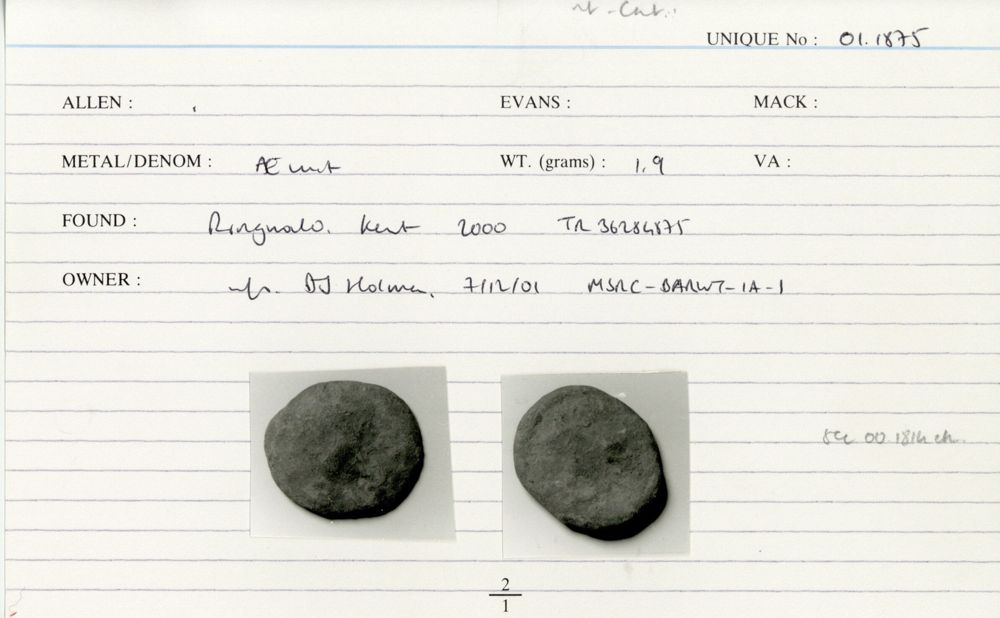 UNIQUE No : 01.1875
ALLEN : EVANS : MACK :
METAL/DENOM : Æ unit WT. (grams) : 1.9 VA :
FOUND : Ringwald. Kent 2000 TR 36284875
OWNER : inf. DJ Holman, 7/12/01 MSRC-BARWT-IA-1
00.1814
2
1